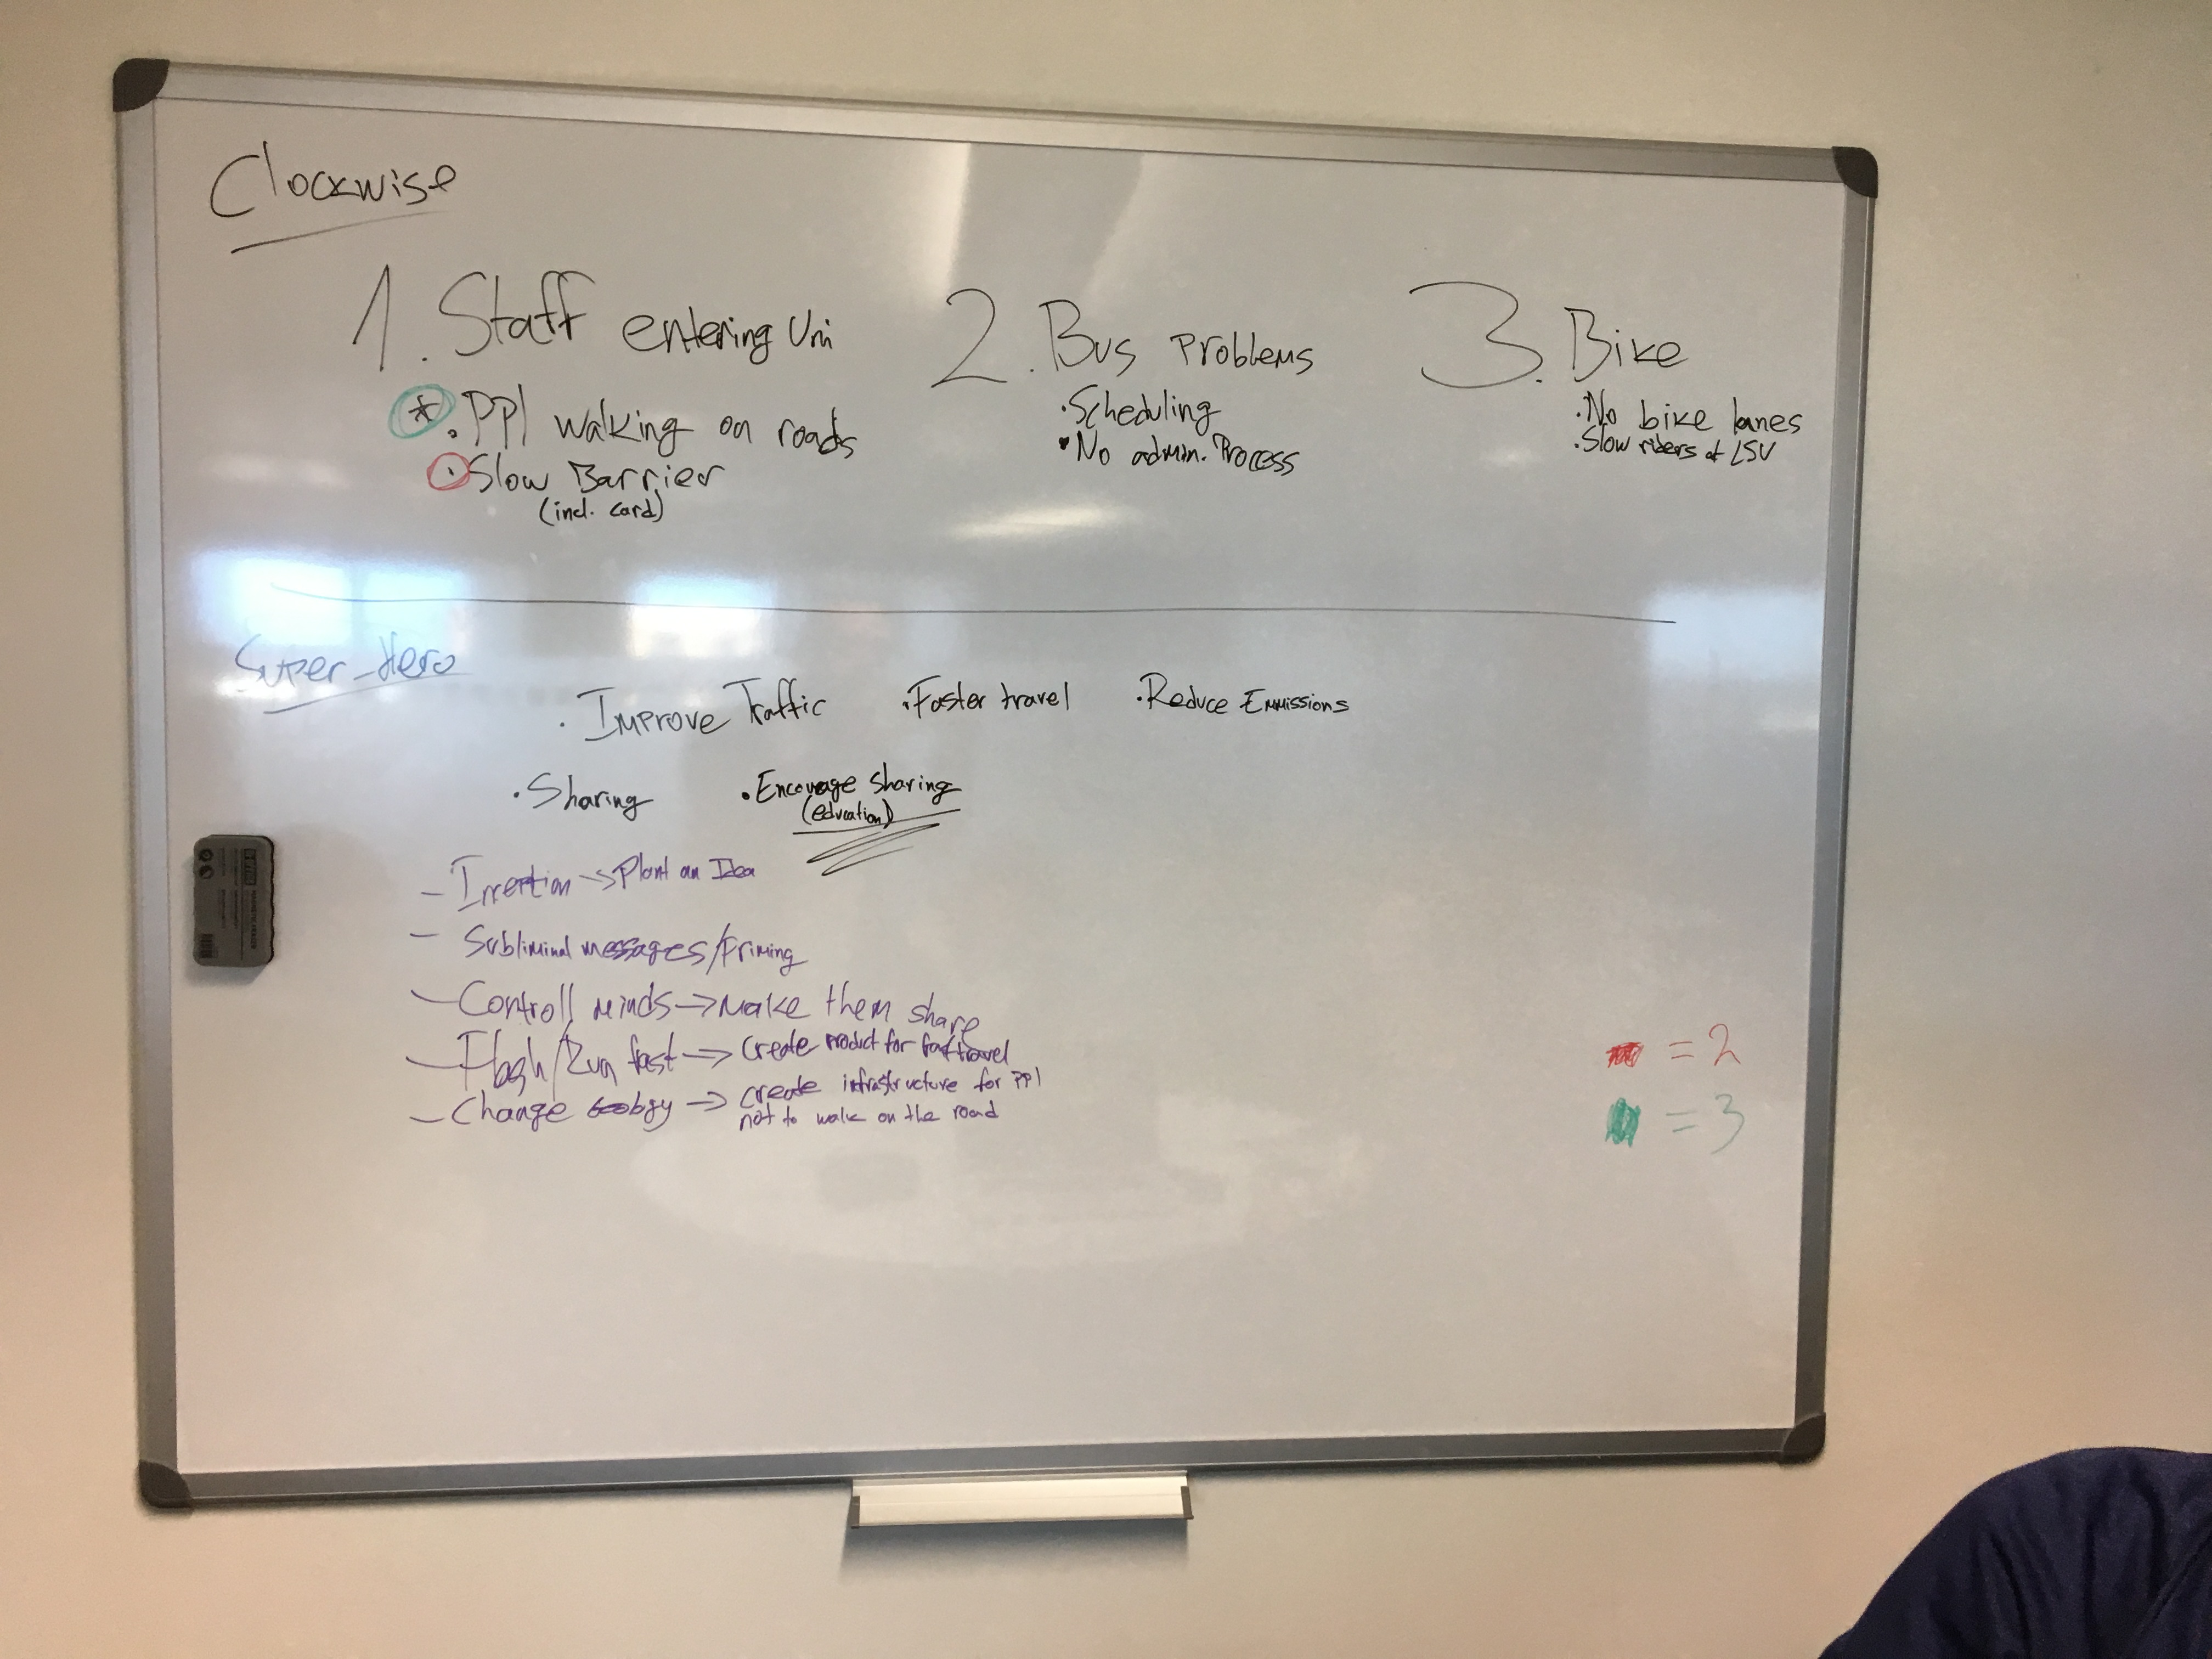 Clockwise
1. Staff entering Uni
* . PPl walking on roads
· Slow Barrier
(incl. card)
2. Bus Problems
· Scheduling
· No admin. Process
3. Bike
· No bike lanes
· Slow riders at LSV
Super-Hero
· Improve Traffic · Faster travel · Reduce Emmissions
· Sharing · Encourage sharing
(education)
– → Plant an Idea
– Subliminal messages/Priming
– Controll minds → Make them share
– Flash/Run fast → Create product for fast travel
– Change Geology → create infrastructure for PPl
not to walk on the road
= 2
= 3